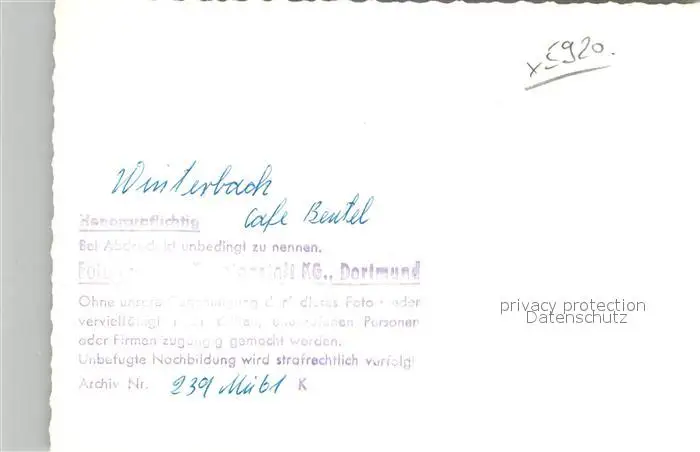 x5920.
Winterbach
Cafe Bentel
Honorarpflichtig
Bei Abdruck ist unbedingt zu nennen.
KG., Dortmund
Ohne unsere Genehmigung darf dieses Foto oder
vervielfältigt noch dritten Personen
oder Firmen zugängig gemacht werden.
Unbefugte Nachbildung wird strafrechtlich verfolgt
Archiv Nr. 239 K
privacy protection
Datenschutz